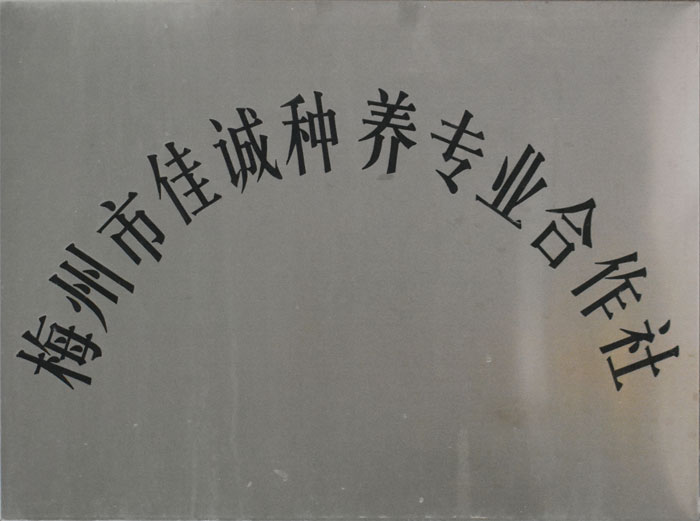 梅州市佳诚种养专业合作社